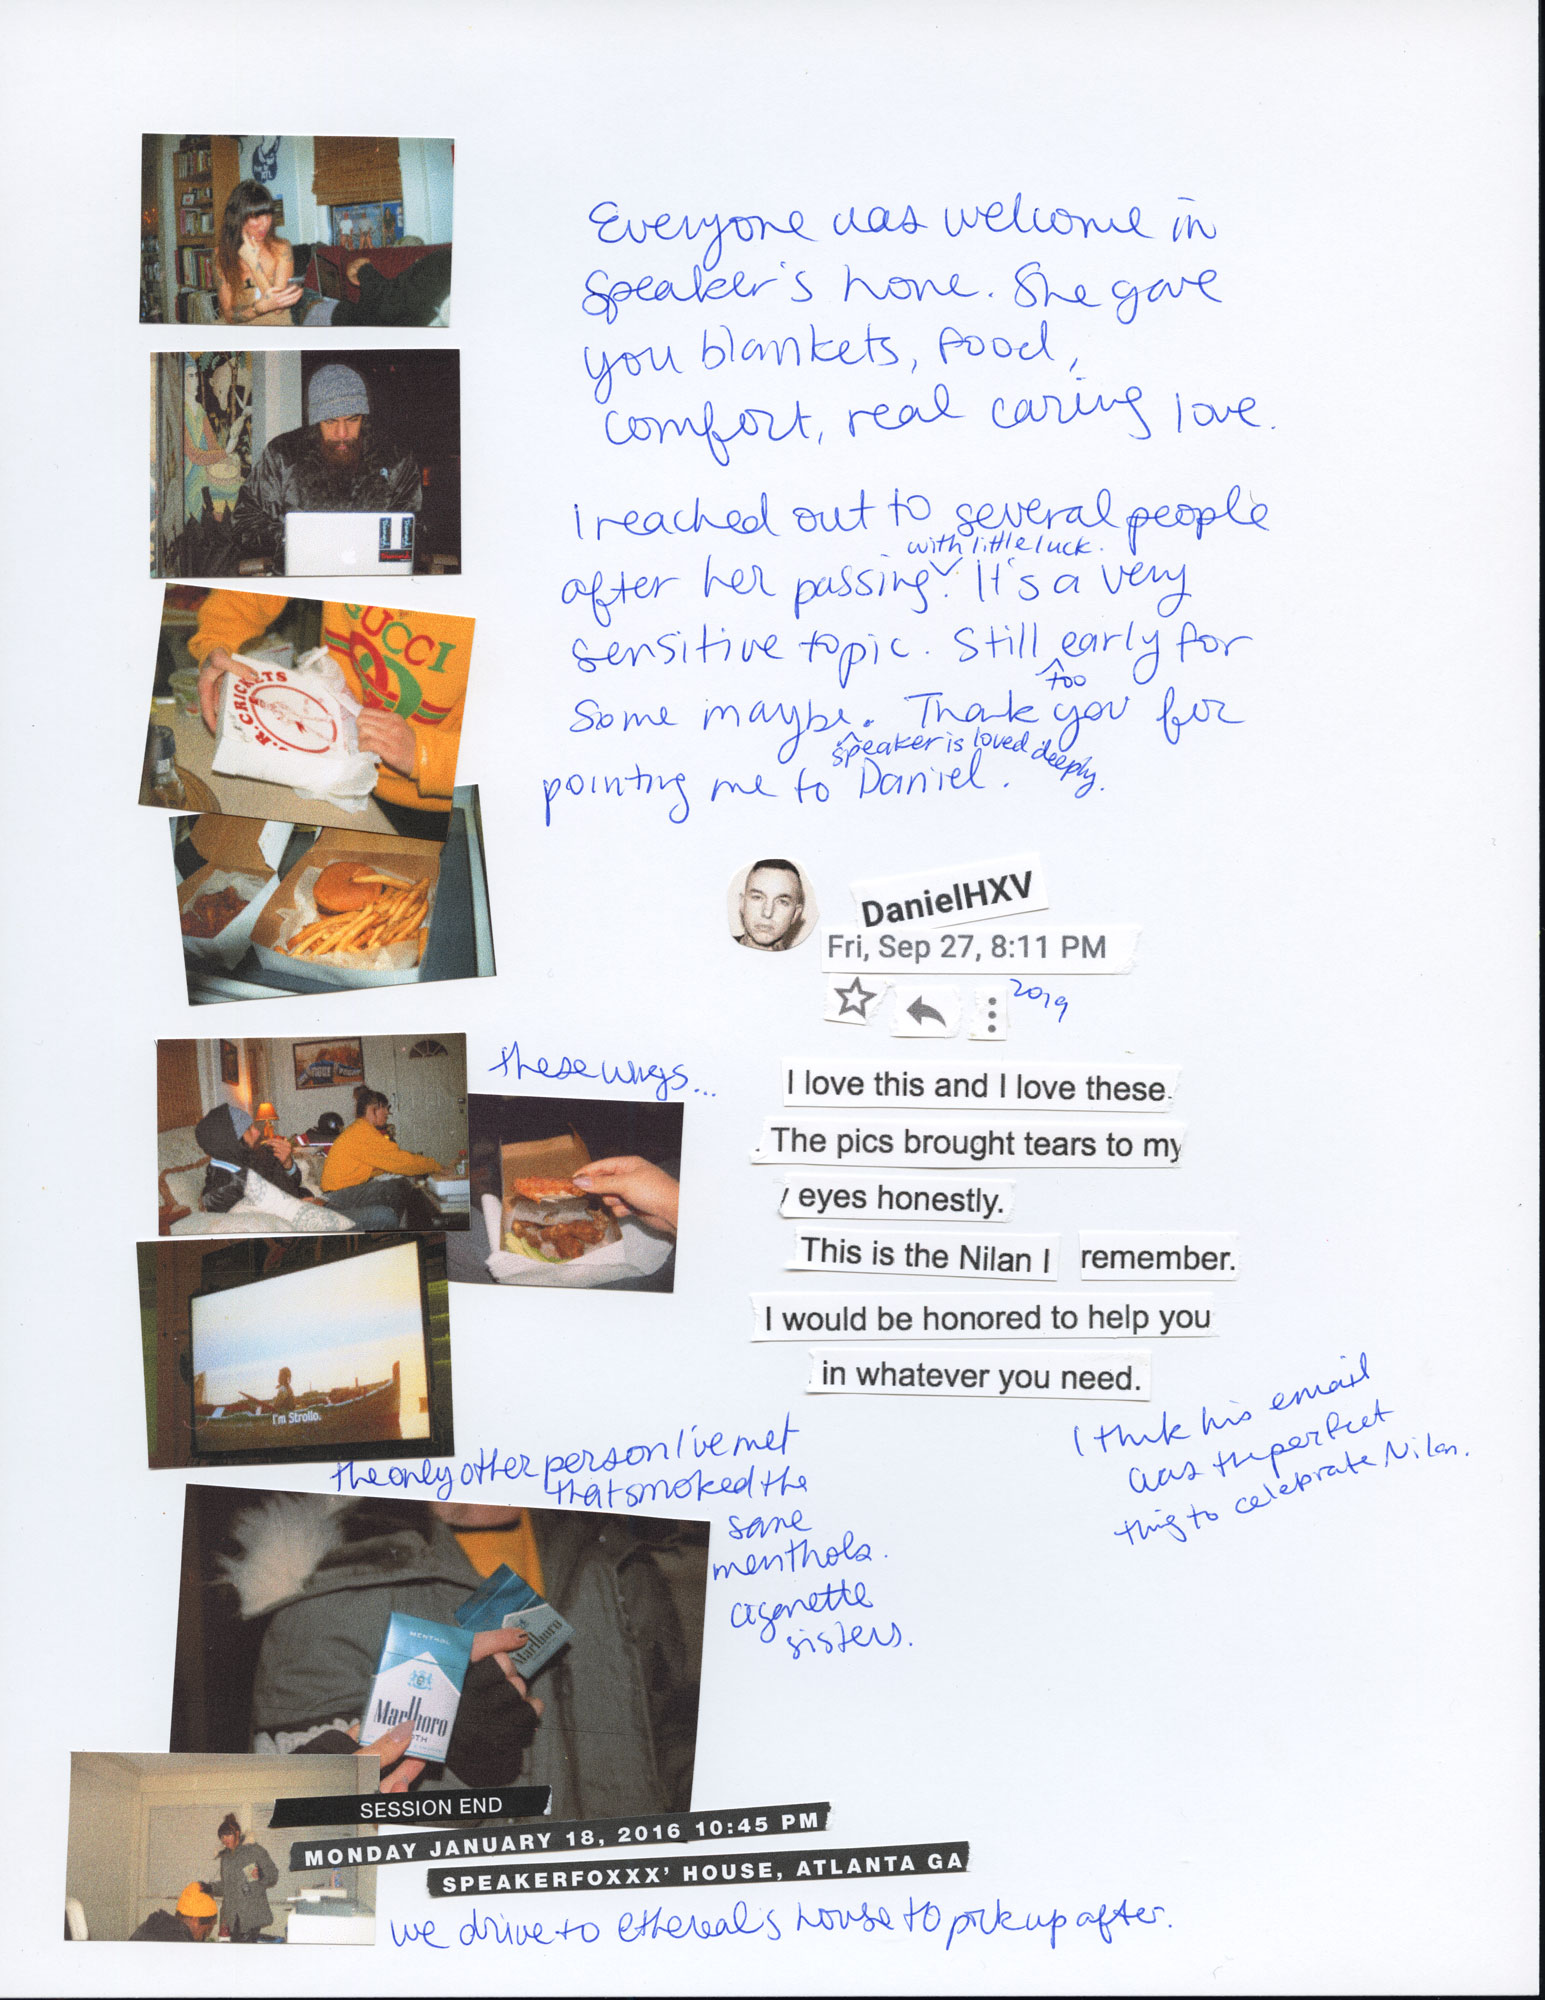 Everyone was welcome in
Speaker's home. She gave
you blankets, food,
comfort, real caring love.
I reached out to several people
with little luck.
after her passing. It's a very
sensitive topic. Still early for
too
some maybe. Thank you for
speaker is loved deeply.
pointing me to Daniel.
GUCCI
J.R. CRICKETS
DanielHXV
Fri, Sep 27, 8:11 PM
2019
these wings...
I love this and I love these.
The pics brought tears to my
eyes honestly.
This is the Nilan I remember.
I would be honored to help you
in whatever you need.
I'm Strollo.
I think his email
was the perfect
thing to celebrate Nilan.
the only other person I've met
that smoked the
same
menthols.
cigarette
sisters.
MENTHOL
Marlboro
Marlboro
SESSION END
MONDAY JANUARY 18, 2016 10:45 PM
SPEAKERFOXXX' HOUSE, ATLANTA GA
we drive to ethereal's house to pick up after.